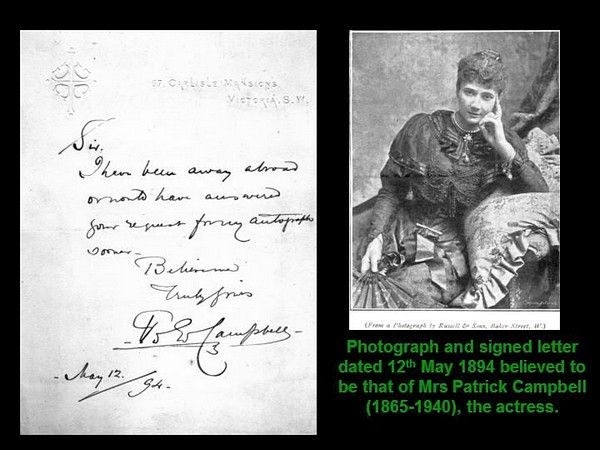 57 CARLISLE MANSIONS
VICTORIA. S.W.
Sir.
I have been away abroad
or would have answered
your request for my autograph
sooner.—
Believe me
Truly yours
Campbell
May 12.
94.
(From a Photograph by Russell & Sons, Baker Street, W.)
Photograph and signed letter
dated 12th May 1894 believed to
be that of Mrs Patrick Campbell
(1865-1940), the actress.